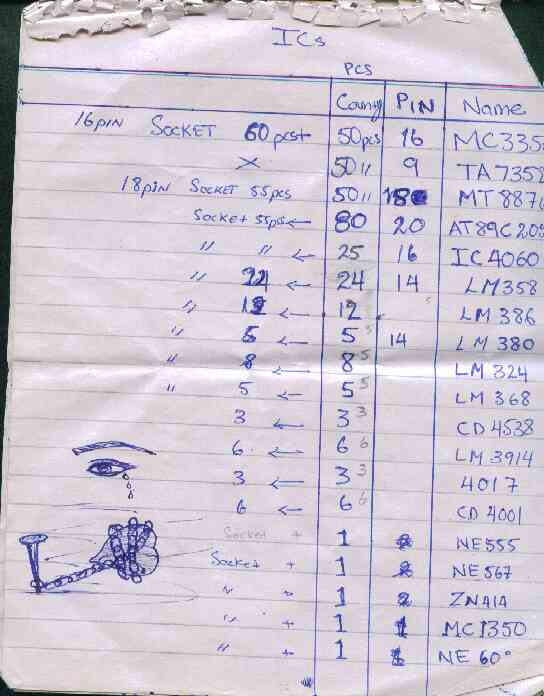 ICs
PCS
County PIN Name
16pin SOCKET 60pcs+ 50pcs 16 MC335
× 50 〃 9 TA7358
18pin SOCKET 55pcs 50 〃 18 MT887
Socket 55pcs ← 80 20 AT89C20
〃 〃 ← 25 16 IC4060
〃 24 ← 24 14 LM358
〃 12 ← 12 LM386
〃 5 ← 5 5 14 LM380
〃 8 ← 8 5 LM324
〃 5 ← 5 5 LM368
3 ← 3 3 CD4538
6. ← 6 6 LM3914
3 ← 3 3 4017
6 ← 6 6 CD4001
Socket + 1 2 NE555
Socket + 1 2 NE567
〃 + 1 2 ZN414
〃 + 1 1 MC1350
〃 + 1 1 NE 60°